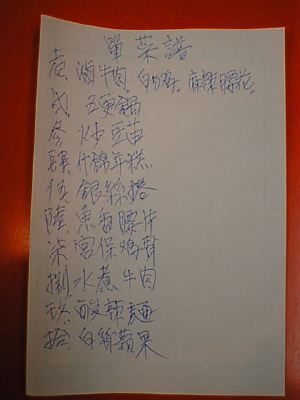 單菜譜
壹 滷牛肉。白切鸡。麻辣腰花。
貳 五更腸
叁 炒豆苗
肆 什錦年糕
伍 銀絲捲
陸 魚香腰片
柒 宮保鸡丁
捌 水煮牛肉
玖 酸辣麵
拾 白糖蘋果